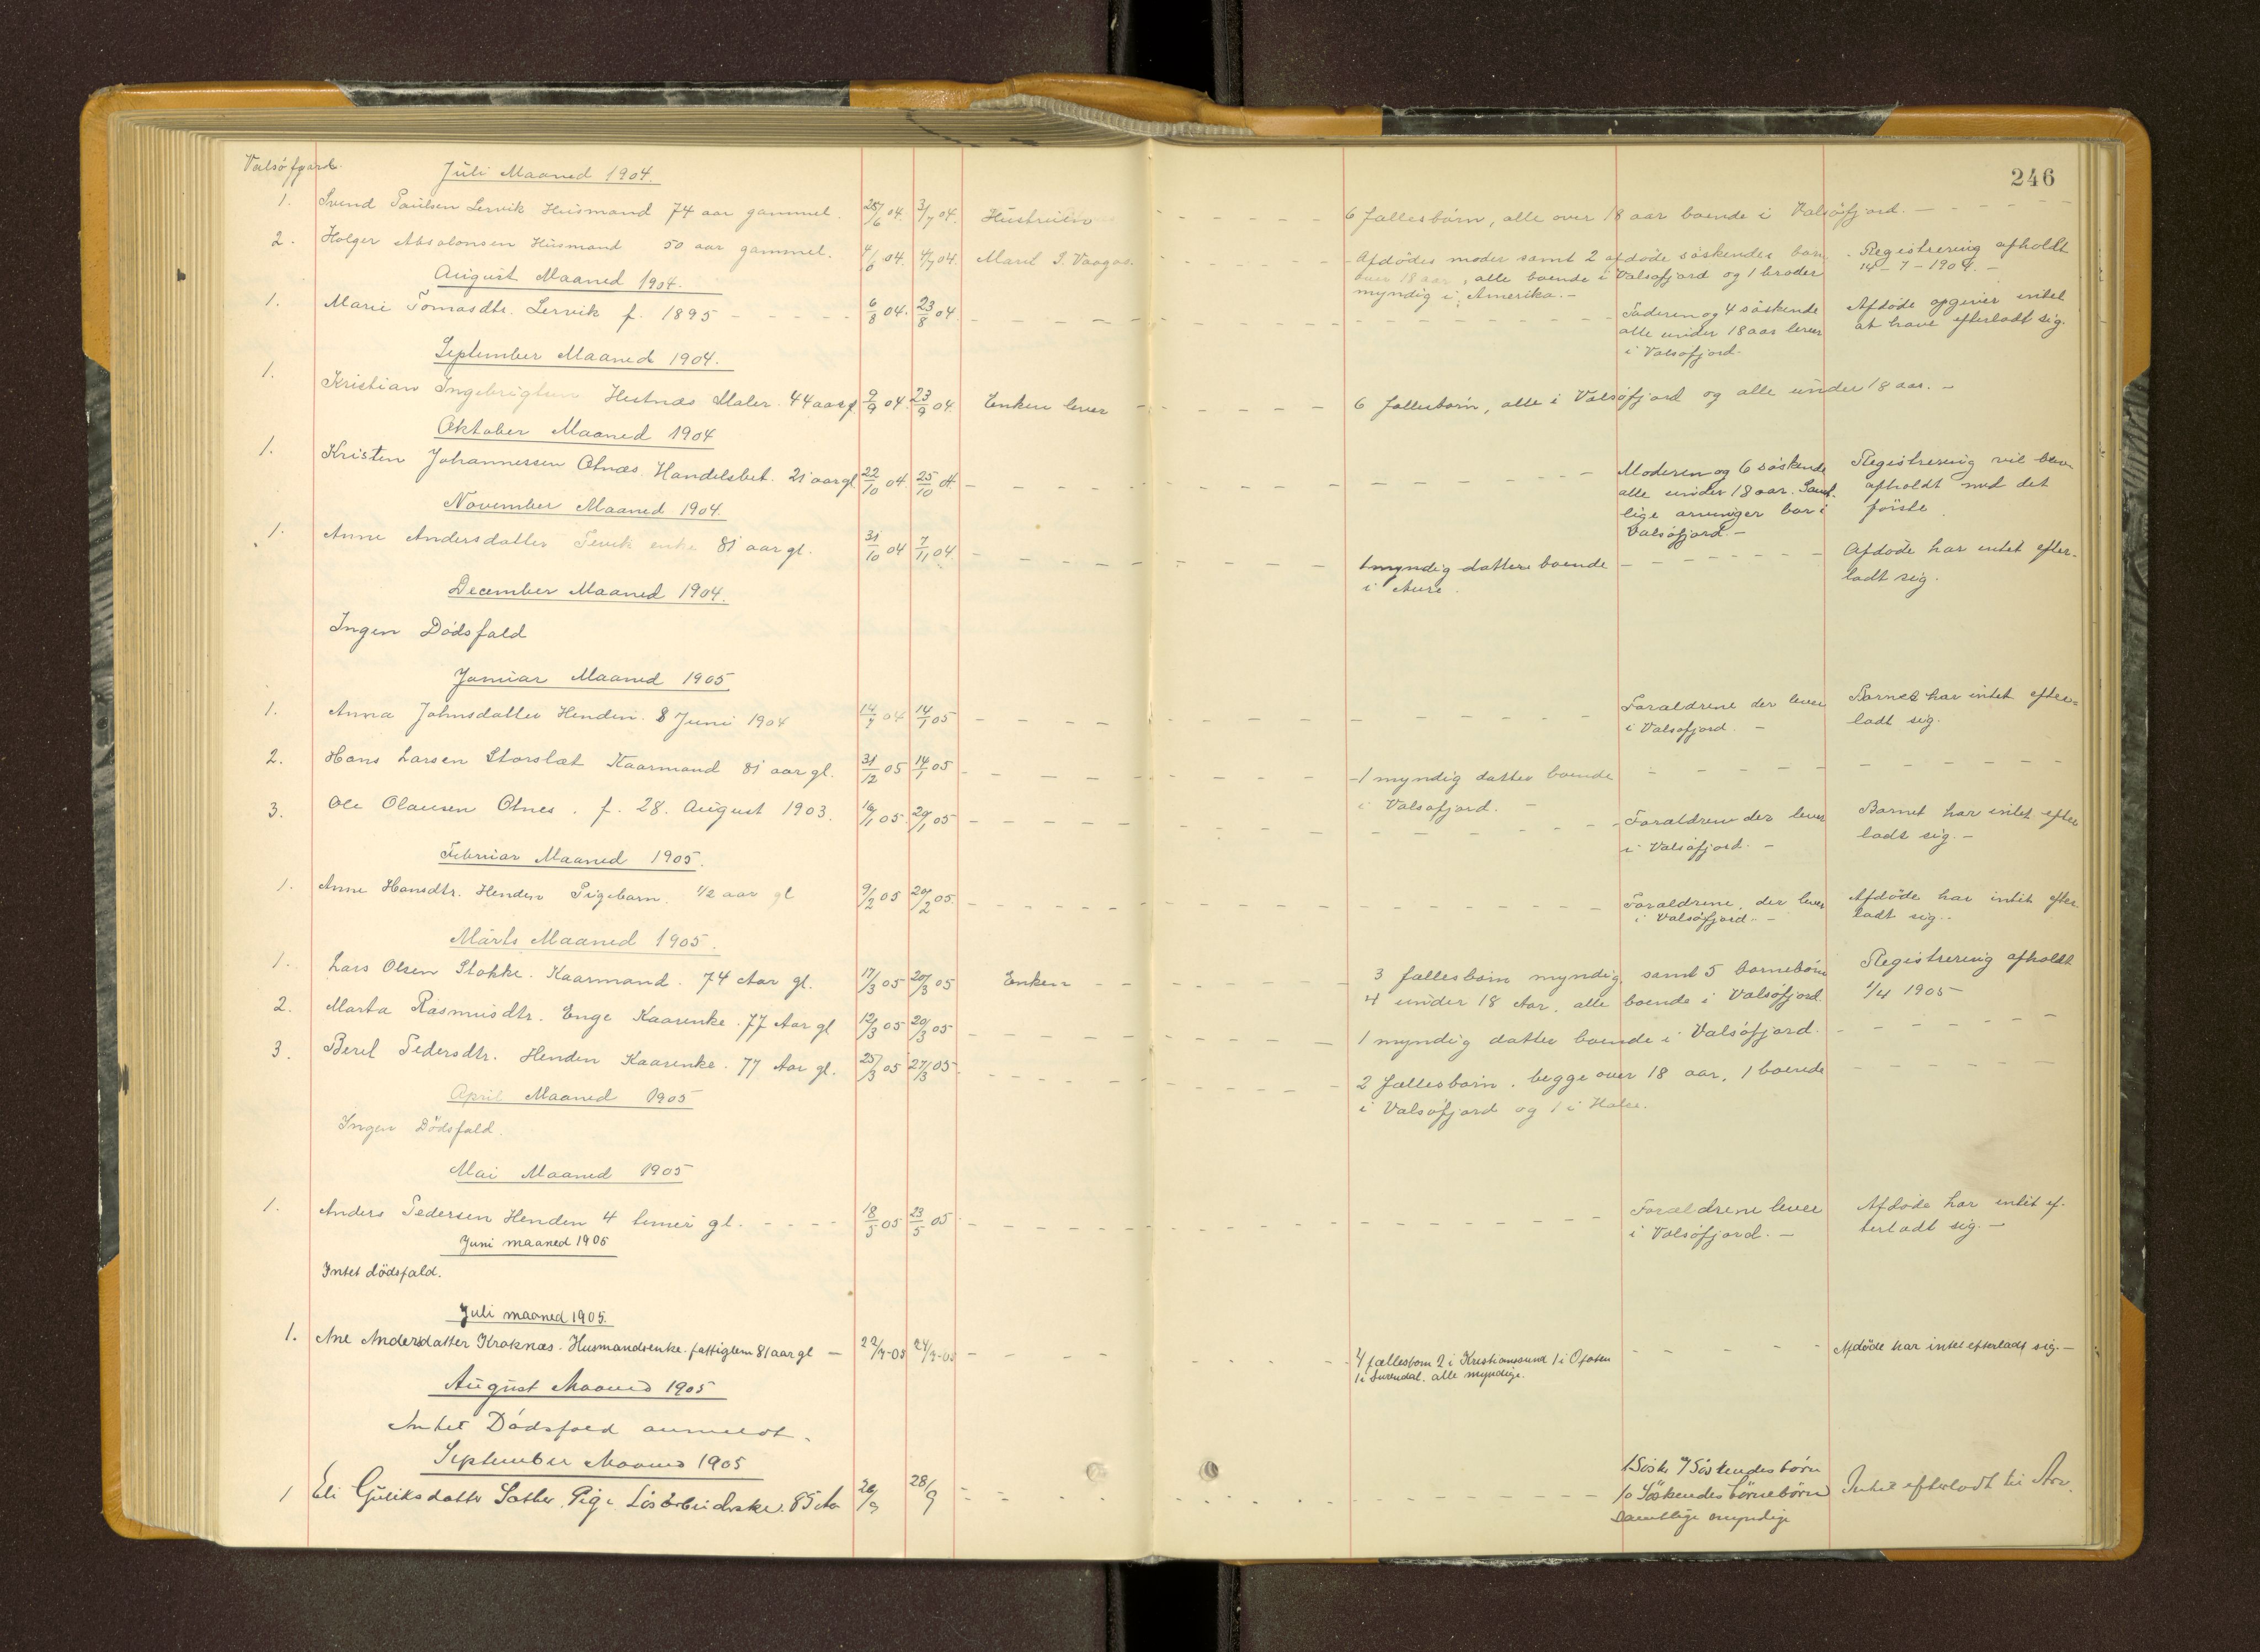 246
Valsöfjord.
Juli Maaned 1904.
1. Svend Paulsen Lervik Husmand 74 aar gammel. 28/6 04. 3/7 04. Hustruen - - - - - 6 fællesbörn, alle over 18 aar boende i Valsöfjord. - - - - - -
2. Holger Absalonsen Husmand 50 aar gammel. 4/7 04. Marit I. Vaagos - - - - - Afdödes moder samt 2 afdöde söskendes börn Registrering afholdt
over 18 aar, alle boende i Valsöfjord og 1 broder 14-7-1904.-
myndig i Amerika.-
August Maaned 1904.
1. Marie Tomasdtr. Lervik f. 1895 - - - - - 6/8 04. 23/8 04. - - - - - Faderen og 4 söskende Afdöde opgives intet
alle under 18 aar lever at have efterladt sig.
i Valsöfjord.
September Maaned 1904.
1. Kristian Ingebrigtsen Hestnæs Maler. 44 aar g. 9/9 04. 23/9 04. Enken lever - - - - - 6 fællesbörn, alle i Valsöfjord og alle under 18 aar. -
Oktober Maaned 1904
1. Kristen Johannessen Otnæs. Handelsbet. 21 aar gl 22/10 04. 25/10 04. - - - - - Moderen og 6 söskende Registrering vil blive
alle under 18 aar. Samt- afholdt med det
lige arvinger bor i förste.
Valsöfjord.-
November Maaned 1904.
1. Anne Andersdatter enke 81 aar gl. 31/10 04 7/11 04 - - - - - 1 myndig datter boende - - - - - Afdöde har intet efter-
i Aure. ladt sig.
December Maaned 1904.
Ingen Dödsfald
Januar Maaned 1905
1. Anna Johnsdatter Henden. 8 Juni 1904 14/1 05 - - - - - Forældrene der lever Barnet har intet efter-
i Valsöfjord. - ladt sig.
2. Hans Larsen Storslæt Kaarmand 81 aar gl. 31/12 05 14/1 05 - - - - - 1 myndig datter boende - - - - -
i Valsöfjord. -
3. Ole Olausen Otnes. f. 28. August 1903. 16/1 05. 20/1 05 - - - - - Forældrene der lever Barnet har intet efter
i Valsöfjord. - ladt sig.-
Februar Maaned 1905.
1. Anne Hansdtr. Henden Pigebarn. 1/2 aar gl 9/2 05 20/2 05. - - - - - Forældrene, der lever Afdöde har intet efter
i Valsöfjord. - ladt sig.
Marts Maaned 1905.
1. Lars Olsen Stokke. Kaarmand. 74 Aar gl. 17/3 05 20/3 05 Enken - - - 3 fællesbörn myndig, samt 5 barnebörn Registrering afholdt
4 under 18 Aar. alle boende i Valsöfjord. 1/4 1905
2. Marta Rasmusdtr. Enge Kaarenke. 77 Aar gl 12/3 05 20/3 05 - - - - - 1 myndig datter boende i Valsöfjord. - - - - -
3. Berit Pedersdtr. Henden Kaarenke. 77 Aar gl. 25/3 05 27/3 05. - - - - - 2 fællesbörn. begge over 18 aar, 1 boende - - - -
i Valsöfjord og 1 i Halse.
April Maaned 1905
Ingen Dödsfald.
Mai Maaned 1905
1. Anders Pedersen Henden 4 timer gl. - - - - 18/5 05 23/5 05 - - - - - Forældrene lever Afdöde har intet ef-
i Valsöfjord. - terladt sig.-
Juni maaned 1905
Intet dödsfald.
Juli maaned 1905.
1. Ane Andersdatter Kraknæs. Husmandsenke. fattiglem 81 aar gl - 22/7-05 24/7-05 - - - - - 4 fællesbörn 2 i Kristianssund 1 i Ofoten - - - - Afdöde har intet efterladt sig.-
1 i Surendal. alle myndige.
August Maaned 1905
Intet Dödsfald anmeldt.
September Maaned 1905
1 Eli Guliksdatter Sæther. Pige. Lösarbeiderske. 85 Aar 28/9 - - - - - 1 Söskende 7 Söskendesbörn
10 Söskendes börnebörn Intet efterladt til Arv.
samtlige myndige